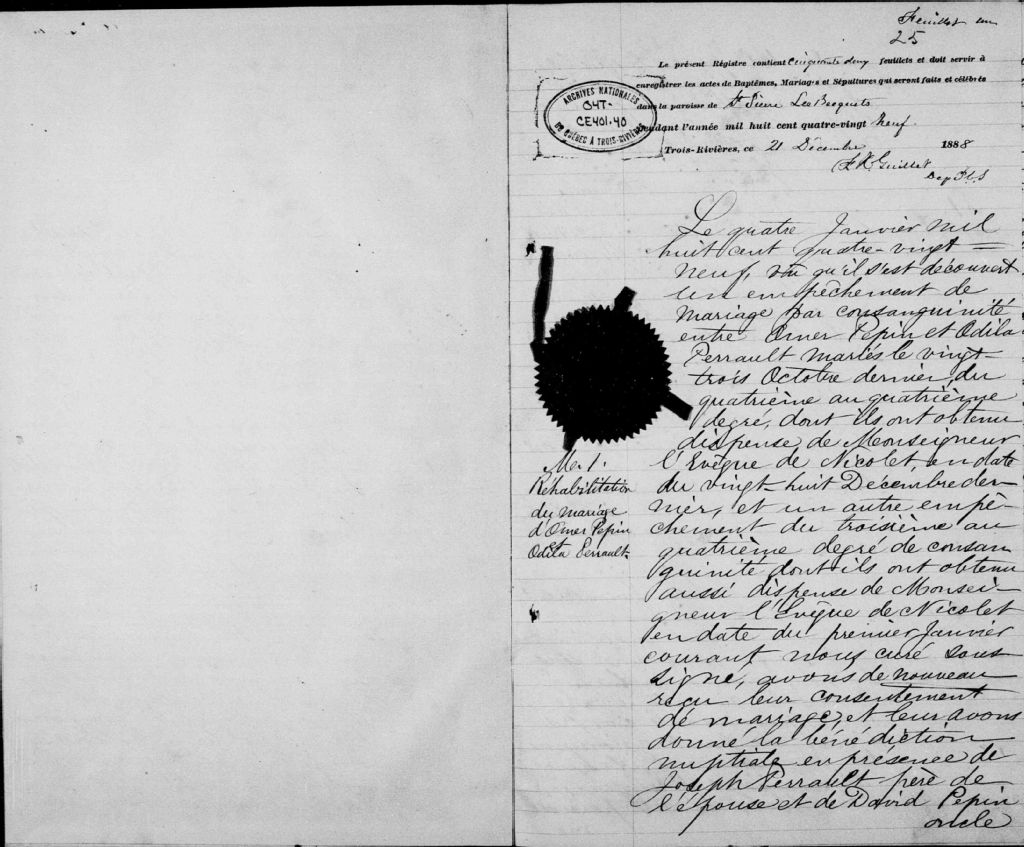 Feuillet un
25
Le présent Régistre contient cinquante deux feuillets et doit servir à
enregistrer les actes de Baptêmes, Mariages et Sépultures qui seront faits et célébrés
dans la paroisse de St Pierre Les Becquets
pendant l'année mil huit cent quatre-vingt Neuf.
Trois-Rivières, ce 21 Décembre 1888
Guillet
Dep P.C.S
ARCHIVES NATIONALES
04T-
CE401-40
DU QUÉBEC À TROIS-RIVIÈRES
Le quatre Janvier mil
huit cent quatre-vingt=
neuf, vu qu'il s'est découvert
un empêchement de
mariage par consanguinité
entre Omer Pepin et Odila
Perrault mariés le vingt-
trois Octobre dernier, du
quatrième au quatrième
degré, dont ils ont obtenu
dispense de Monseigneur
l'Evêque de Nicolet, en date
du vingt-huit Décembre der-
nier, et un autre empê-
chement du troisième au
quatrième degré de consan
guinité dont ils ont obtenu
aussi dispense de Monsei-
gneur l'Evêque de Nicolet
en date du premier Janvier
courant nous curé sous-
signé, avons de nouveau
reçu leur consentement
de mariage, et leur avons
donné la bénédiction
nuptiale en présence de
Joseph Perrault père de
l'épouse et de David Pepin
oncle
M. 1.
Réhabilitation
du mariage
d'Omer Pepin
et
Odila Perrault